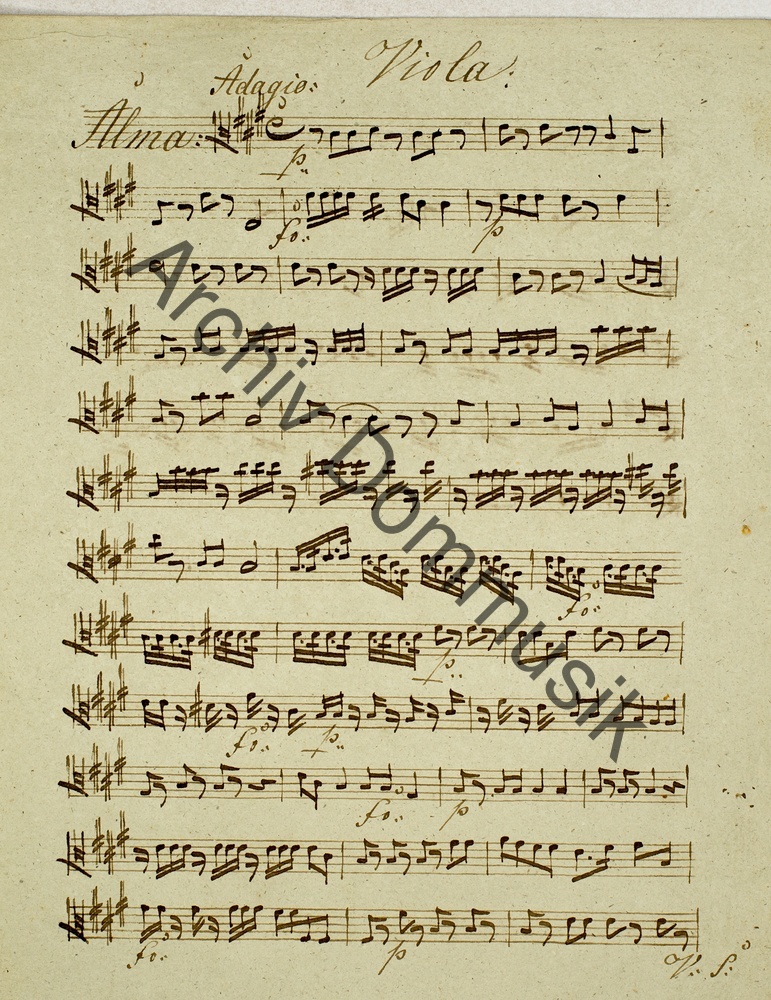 Viola:
Adagio:
Alma:
p:
fo: p
fo:
p:
fo: p:
fo: p
fo: p
V: S:
Archiv Dommusik